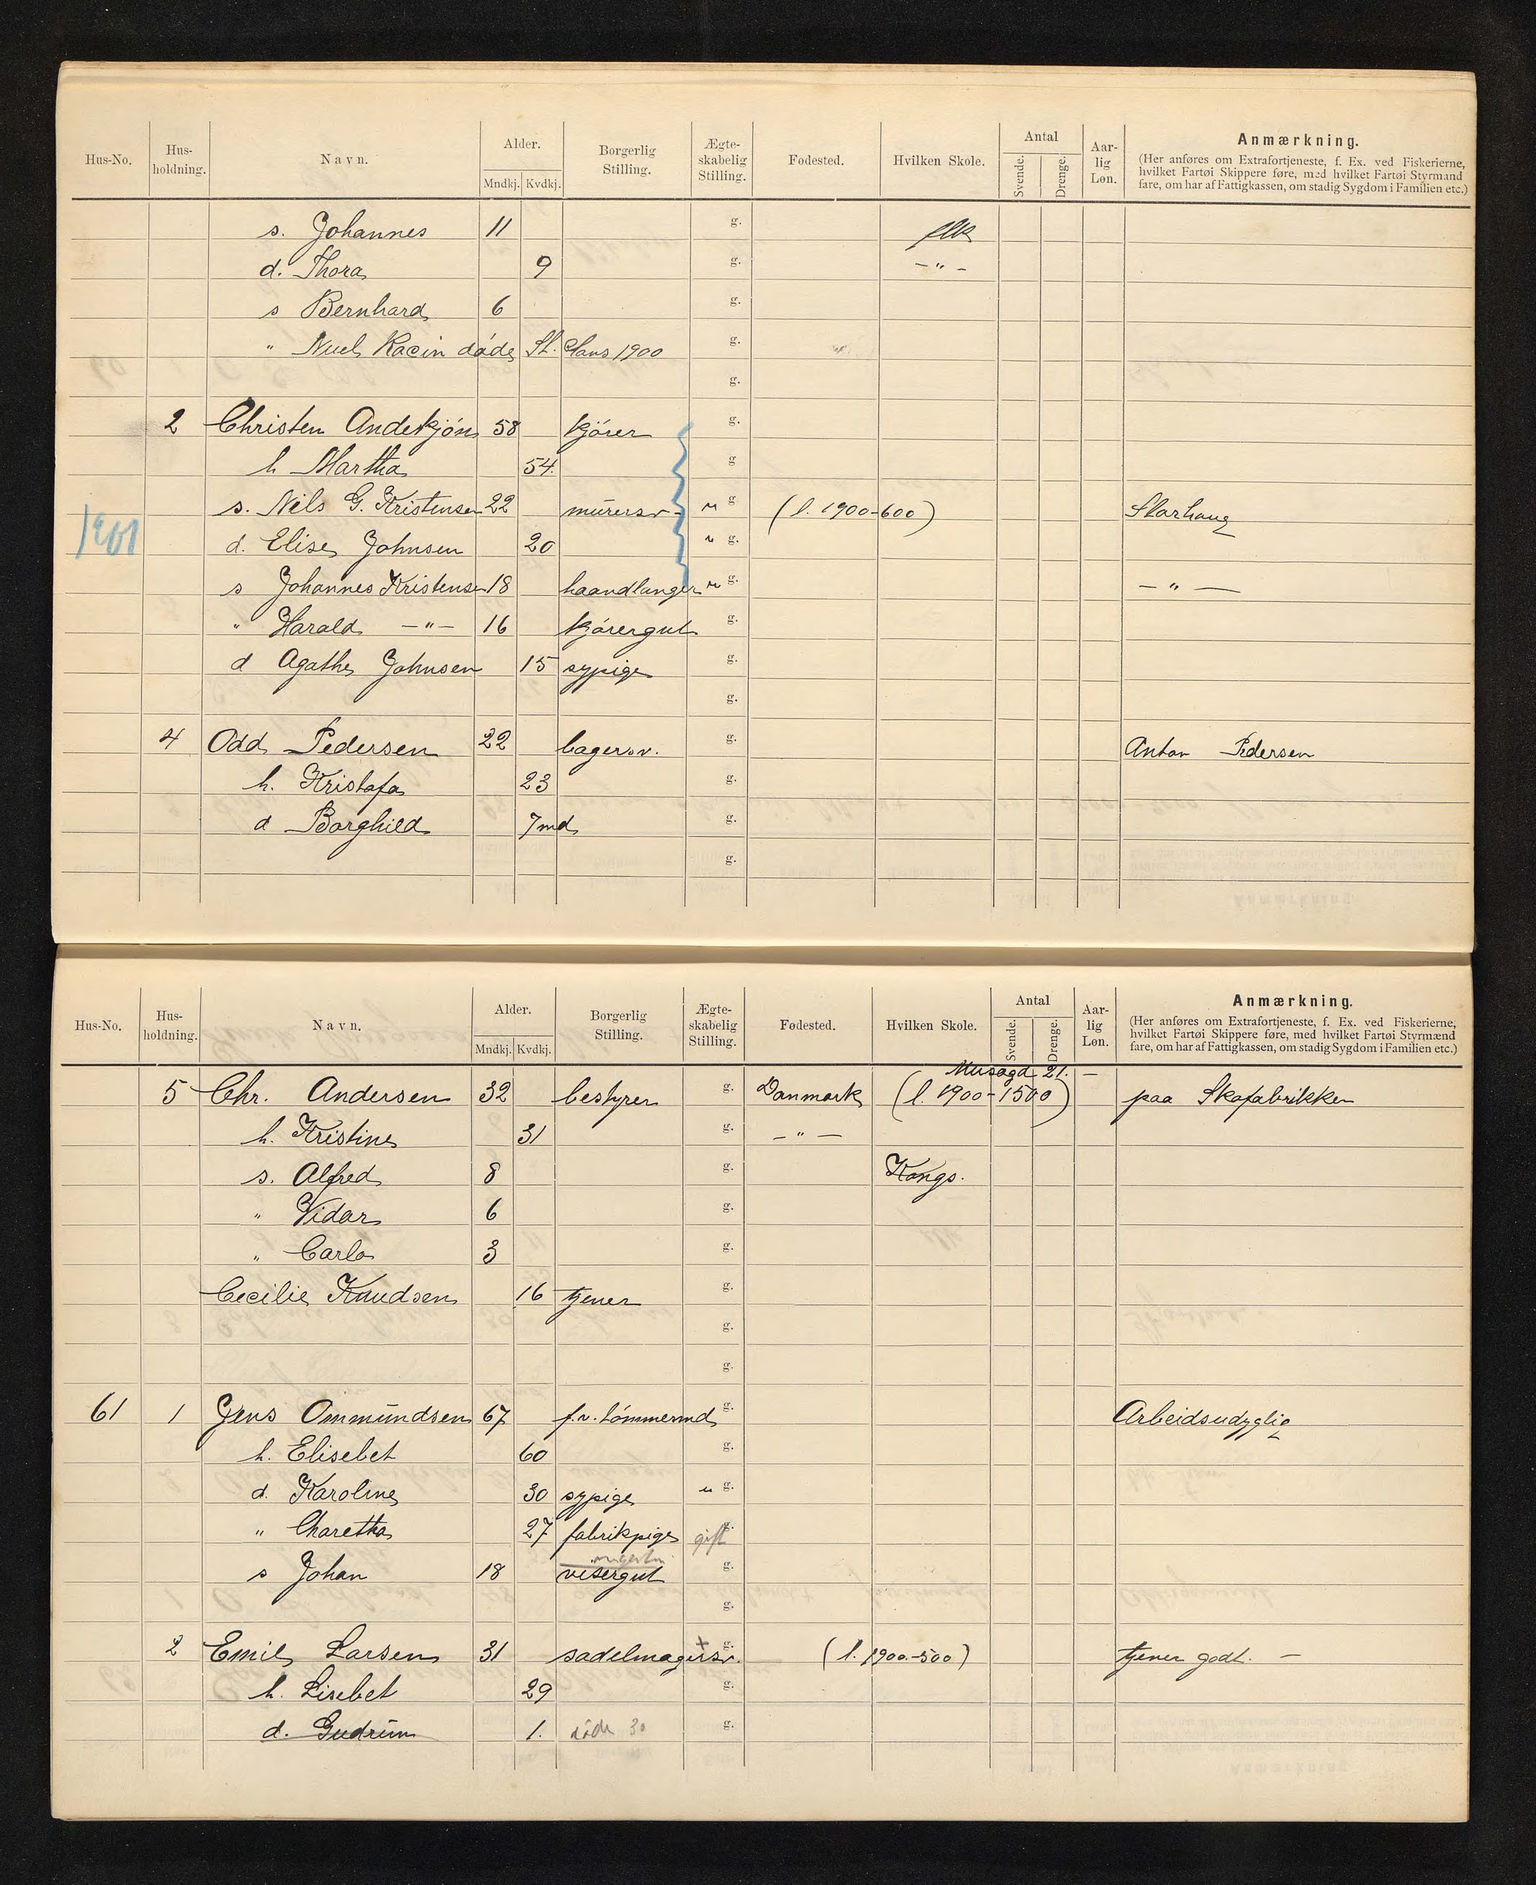 Hus-No. Hus-holdning. Navn. Alder. Mndkj. Kvdkj. Borgerlig Stilling. Ægte-skabelig Stilling. Fødested. Hvilken Skole. Antal Svende. Drenge. Aar-lig Løn. Anmærkning.
(Her anføres om Extrafortjeneste, f. Ex. ved Fiskerierne, hvilket Fartøi Skippere føre, med hvilket Fartøi Styrmænd fare, om har af Fattigkassen, om stadig Sygdom i Familien etc.)
s. Johannes 11 g.
d. Thora 9 g. —"—
s Bernhard 6 g.
" døde 1900 g.
g.
2 Christen Andekjøn 58 kjører g.
h Martha 54. g
s. Nils G. Kristensen 22 murersv. u g (l. 1900-600) Skarhaug
d. Elise Johnsen 20 u g.
s Johannes Kristensen 18 haandlanger u g. —"—
" Harald —"— 16 kjørergut g.
d Agathe Johnsen 15 sypige g.
g.
4 Odd Pedersen 22 bagersv. g. Anton Pedersen
h. Kristofa 23 g.
d Borghild 7 md g.
g.
Hus-No. Hus-holdning. Navn. Alder. Mndkj. Kvdkj. Borgerlig Stilling. Ægte-skabelig Stilling. Fødested. Hvilken Skole. Antal Svende. Drenge. Aar-lig Løn. Anmærkning.
(Her anføres om Extrafortjeneste, f. Ex. ved Fiskerierne, hvilket Fartøi Skippere føre, med hvilket Fartøi Styrmænd fare, om har af Fattigkassen, om stadig Sygdom i Familien etc.)
Musegd 21. —
5 Chr. Andersen 32 bestyrer g. Danmark (l. 1900-1500) paa Skofabrikken
h. Kristine 31 g. —"—
s. Alfred 8 g. Kongs.
" Vidar 6 g.
" Carlo 3 g.
Cecilie Knudsen 16 tjener g.
g.
g.
61 1 Jens Ommundsen 67 f.v. tømmermd g. Arbeidsudyglig
h. Elisebet 60 g.
d. Karoline 30 sypige u g.
" Charetha 27 fabrikpige g. gift
s Johan 18 visergut g.
g.
2 Emil Larsen 31 sadelmagersv. + g. (l. 1900.-500) tjener godt. —
h. Lisebet 29 g.
d. Gudrun 1. døde 30 g.